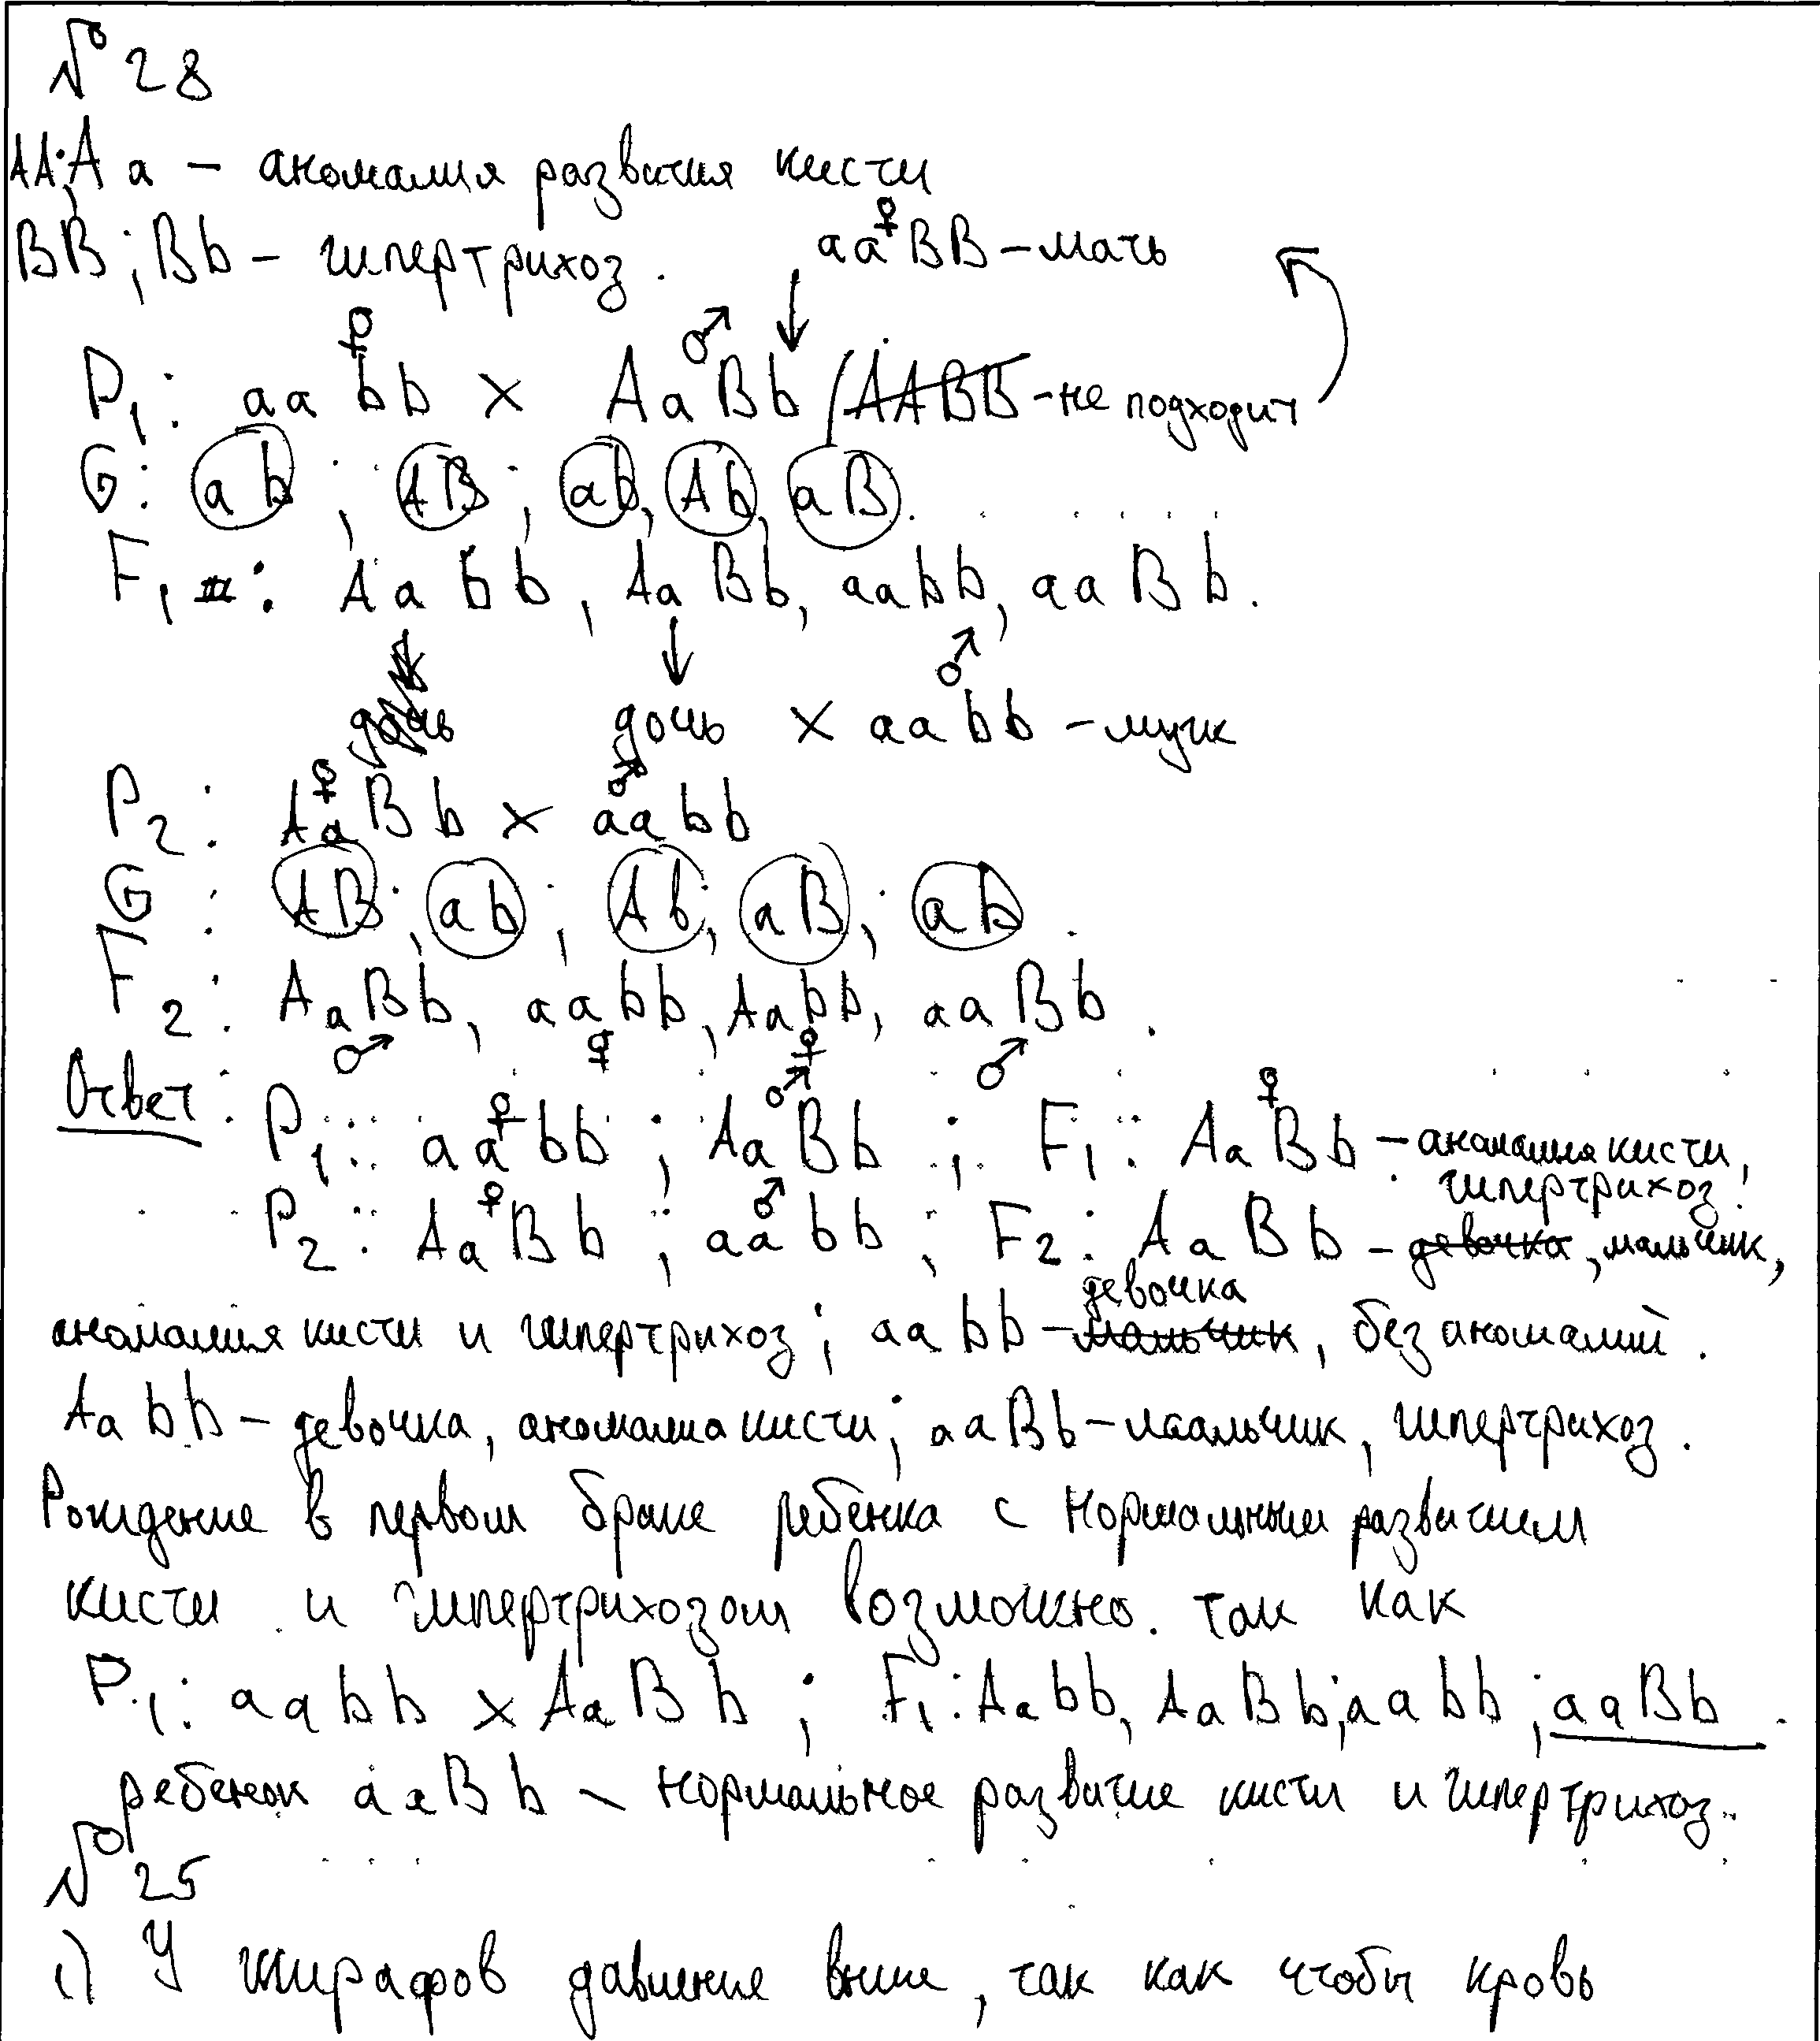 № 28
AA; Aa – аномалия развития кисти
BB; Bb – гипертрихоз. ♀ aaBB – мать
P1: ♀ aabb × ♂ AaBb / AABB - не подходит
G: ab ; AB ; ab, Ab, aB.
F1 : Aabb, AaBb, aabb, aaBb.
дочь дочь × ♂ aabb – муж
P2: ♀ AaBb × ♂ aabb
G: AB ; ab ; Ab ; aB ; ab.
F2: AaBb, aabb, Aabb, aaBb.
♂ ♀ ♀ ♂
Ответ: P1: ♀ aabb ; ♂ AaBb ; F1: ♀ AaBb – аномалия кисти, гипертрихоз;
P2: ♀ AaBb ; ♂ aabb ; F2: AaBb – девочка, мальчик,
аномалия кисти и гипертрихоз; aabb – мальчик девочка, без аномалий.
Aabb – девочка, аномалия кисти; aaBb – мальчик, гипертрихоз.
Рождение в первом браке ребенка с нормальным развитием
кисти и гипертрихозом возможно. так как
P1: aabb × AaBb ; F1: Aabb, AaBb; aabb ; aaBb.
ребенок aaBb – нормальное развитие кисти и гипертрихоз.
№ 25
1) У жирафов давление выше, так как чтобы кровь